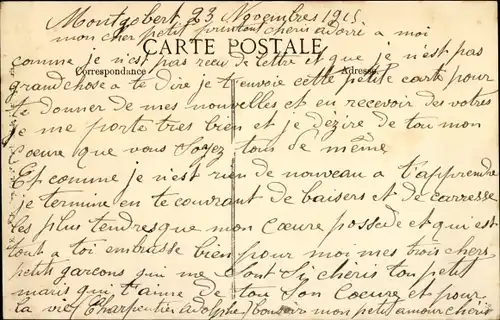 Montgobert, 23 Novembres 1915
mon cher petit printout cheris adorré a moi
CARTE POSTALE
comme je n'est pas recu de lettre et que je n'est pas
Correspondance Adresse
grand chose a te dire je t'envoie cette petite carte pour
te donner de mes nouvelles et en recevoir des votres
je me porte tres bien et je dezire de tou mon
Coeure que vous soyez tous de même
Et comme je n'est rien de nouveau a t'apprendre
je termine en te couvrant de baisers et de carresse
les plus tendresque mon Coeure possede et qui est
tout a toi embrasse bien pour moi mes trois chers
petits garcons qui me sont si cheris ton petit
maris qui t'aime de tou son Coeure et pour
la vie (Charpentier Adolphe) bonsoir mon petit amour cheris